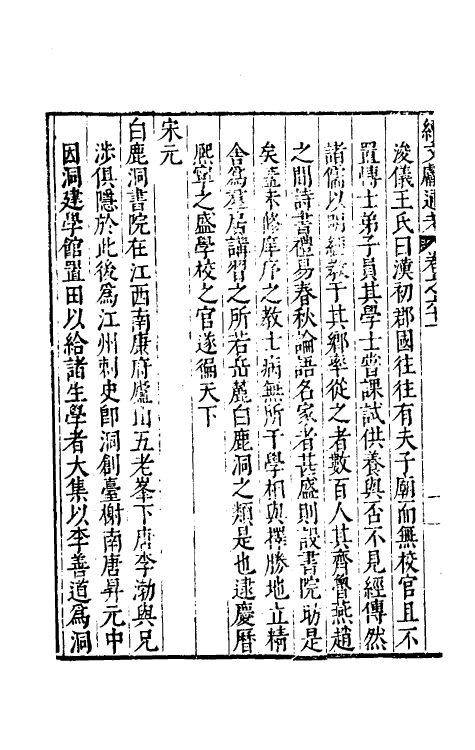 續文獻通考 卷之六十一
浚儀王氏曰漢初郡國往往有夫子廟而無校官且不
置博士弟子員其學士嘗課試供養與否不見經傳然
諸儒以明經教于其鄉率從之者數百人其齊魯燕趙
之間詩書禮易春秋論語名家者甚盛則設書院昉是
矣蓋未脩庠序之教士病無所于學相與擇勝地立精
舍為羣居講習之所若岳麓白鹿洞之類是也逮慶曆
熈寧之盛學校之官遂徧天下
宋元
白鹿洞書院在江西南康府廬山五老峯下唐李渤與兄
涉俱隱於此後為江州刺史即洞創臺榭南唐昇元中
因洞建學館置田以給諸生學者大集以李善道為洞